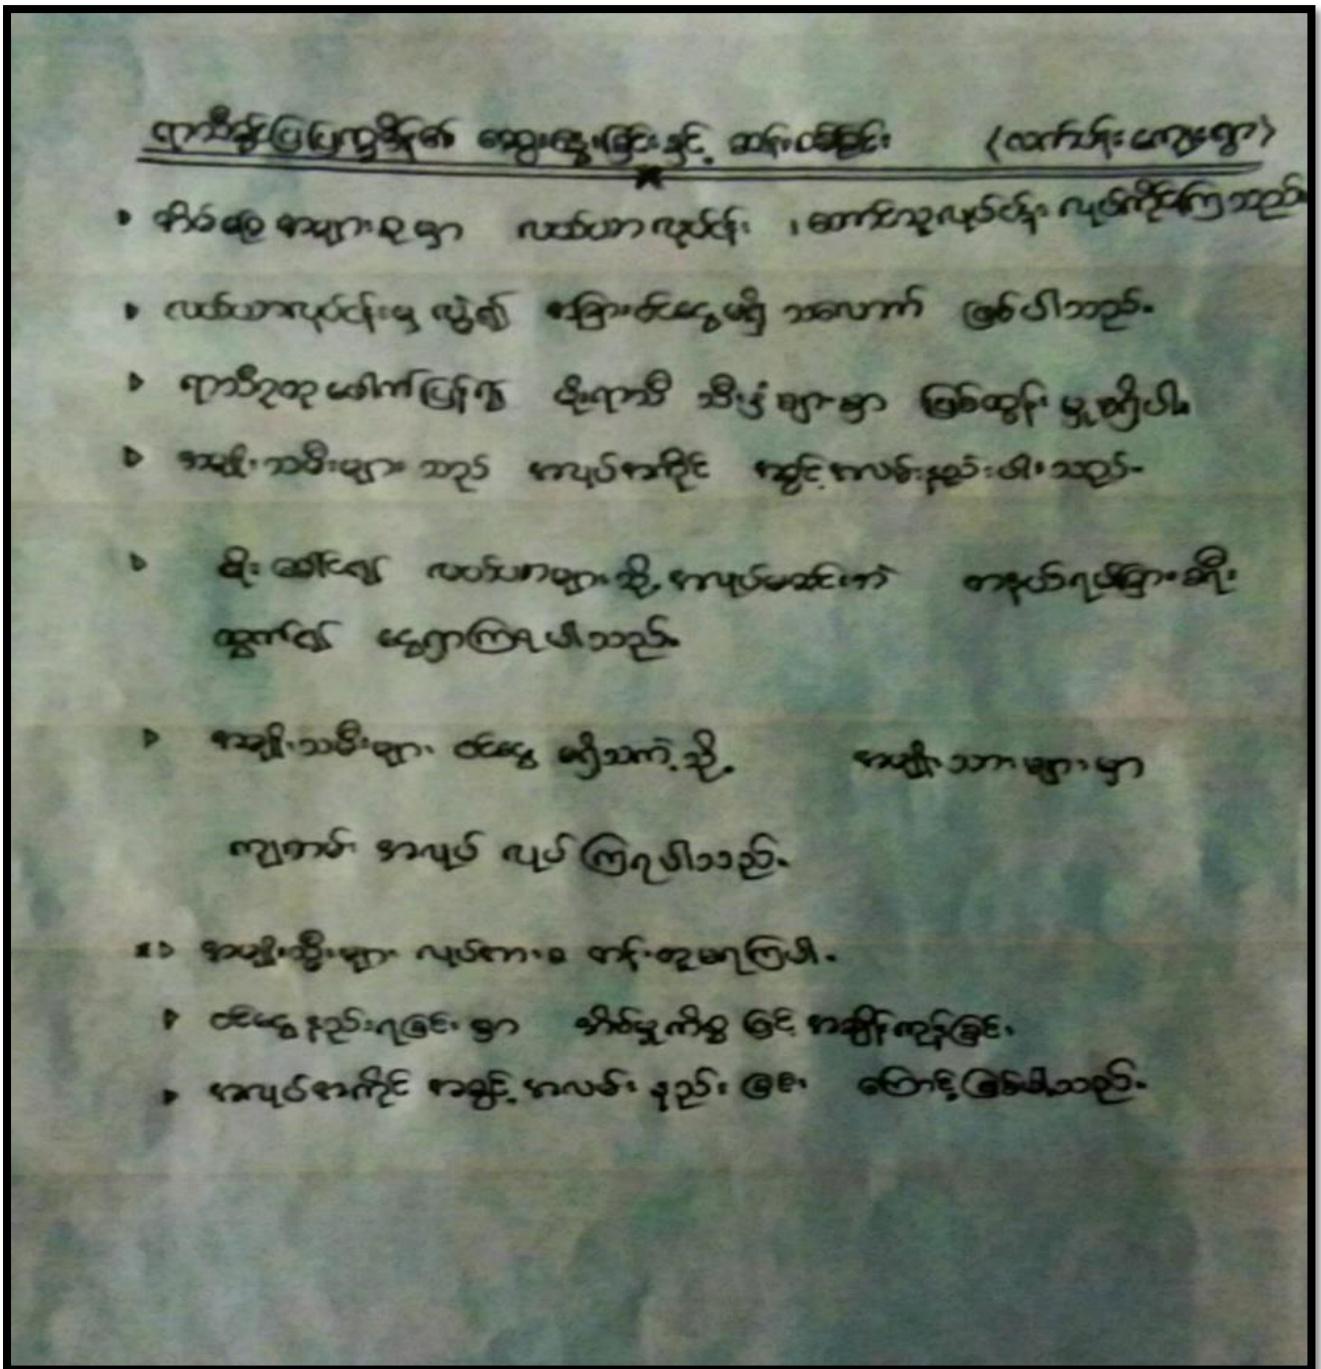 ရာသီခွင်ပြပြက္ခဒိန်၏ ဆွေးနွေးခြင်းနှင့် ဆန်းစစ်ခြင်း (လက်ပန်းကျေးရွာ)
အိမ်ခြေ အများစုမှာ လယ်ယာလုပ်ငန်း ၊ တောင်သူလုပ်ငန်း လုပ်ကိုင်ကြသည်။
လယ်ယာလုပ်ငန်းမှ လွဲ၍ အခြားဝင်ငွေမရှိ သလောက် ဖြစ်ပါသည်။
ရာသီဥတု ဖောက်ပြန်မှု မိုးရာသီ သီးနှံများမှာ ဖြစ်ထွန်းမှု မရှိပါ။
အမျိုးသမီးများ သည် အလုပ်အကိုင် အခွင့်အလမ်းနည်းပါးသည်။
မိုးခေါင်၍ လယ်ယာများသို့ အလုပ်မဆင်းဘဲ တနယ်ရပ်ခြားခရီး
ထွက်၍ ငွေရှာကြရပါသည်။
အမျိုးသမီးများ ဝင်ငွေ မရှိသကဲ့သို့ အမျိုးသားများမှာ
ကျဘမ်း အလုပ် လုပ်ကြရပါသည်။
အမျိုးသ္မီးများ လုပ်အားခ တန်းတူမရကြပါ။
ဝင်ငွေနည်းရခြင်းမှာ အိမ်မှုကိစ္စ ဖြင့် အချိန်ကုန်ခြင်း၊
အလုပ်အကိုင် အခွင့်အလမ်း နည်းခြင်း ကြောင့်ဖြစ်ပါသည်။